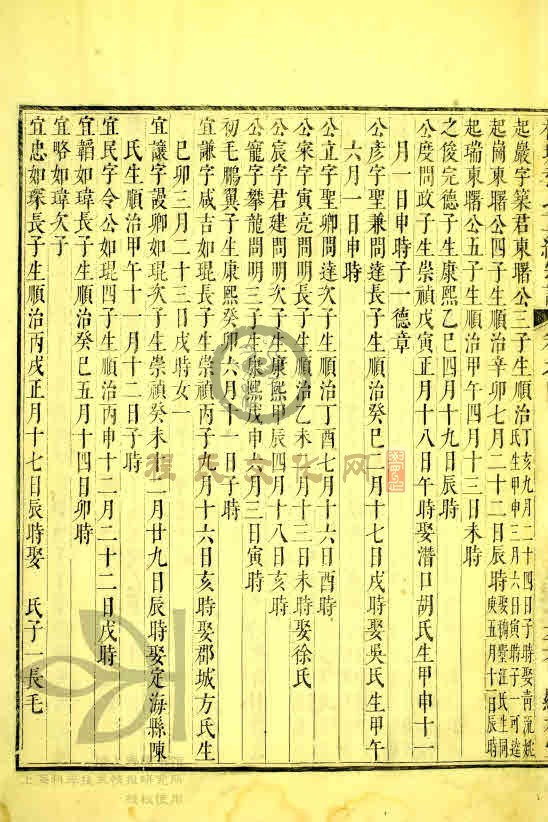 起嚴字築君東曙公三子生順治丁亥九月二十四日子時娶青流姚
氏生甲申三月六日寅時子一可達
起崗東曙公四子生順治辛卯七月二十二日辰時娶稠墅汪氏生同
庚五月十一日辰時
起瑞東曙公五子生順治甲午四月十三日未時
之俊完德子生康熙乙巳四月十九日辰時
公度問政子生崇禎戊寅正月十八日午時娶潛口胡氏生甲申十一
月一日申時子一德章
公彥字聖兼問達長子生順治癸巳二月十七日戌時娶吳氏生甲午
六月一日申時
公立字聖卿問達次子生順治丁酉七月十六日酉時
公寀字寅亮問明長子生順治乙未十一月十三日未時娶徐氏
公宸字君建問明次子生康熙甲辰四月十八日亥時
公寵字攀龍問明三子生康熙戊申六月三日寅時
初毛鵬翼子生康熙癸卯六月十一日子時
宜謙字咸吉如琨長子生崇禎丙子九月十六日亥時娶郡城方氏生
己卯三月二十三日戌時女一
宜讓字謖卿如琨次子生崇禎癸未十二月廿九日辰時娶定海縣陳
氏生順治甲午十一月十二日子時
宜民字令公如琨四子生順治丙申十二月二十二日戌時
宜韜如瑋長子生順治癸巳五月十四日卯時
宜略如瑋次子
宜忠如琛長子生順治丙戌正月十七日辰時娶 氏子一長毛
程氏文化网
上海科学技术情报研究所
授权使用